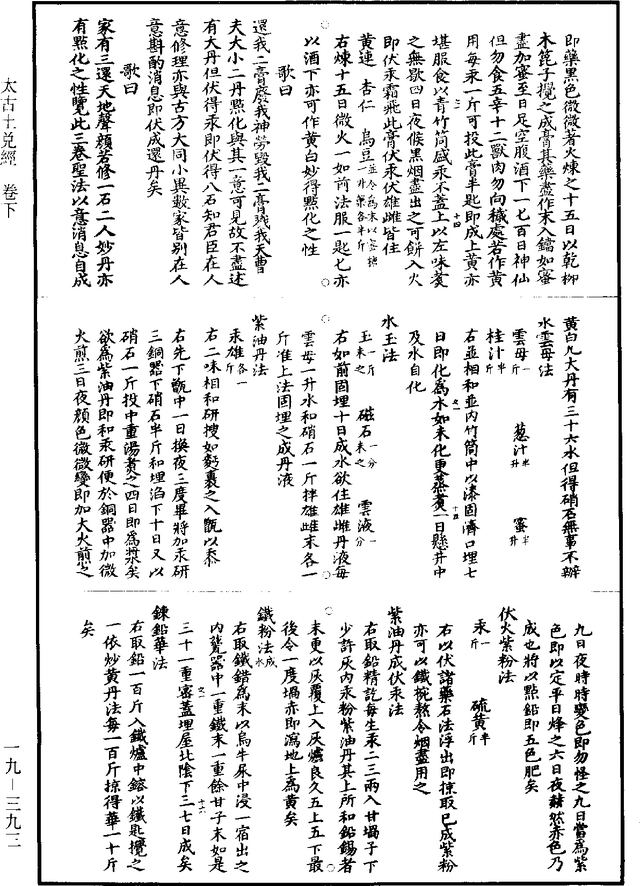 即藥黑色微微著火煉之十五日以乾柳
木篦子攪之成膏其藥盡作末入鐺如蜜
盡加蜜至日足空腹酒下一七百日神仙
但勿食五辛十二獸肉勿向穢處若作黃
用每汞一斤可投此膏半匙即成上黃亦
堪服食以青竹筒盛汞不蓋上以左味䓁
之無歇四日夜候黑烟盡出之可餅入火
即伏汞霜飛此膏伏汞伏雄雌皆住
黃連 杏仁 烏豆
右煉十五日微火一如前法服一匙七亦
以酒下亦可作黃白妙得點化之性
歌曰
還我二膏廢我神勞毀我二膏殘我天曹
夫大小二丹點化與其一意可見故不盡述
有大丹但伏得汞即伏得八石知君臣在人
意修理亦與古方大同小異數家皆別在人
意斟酌消息即伏成還丹矣
歌曰
家有三還天地聲顏若修一石二人妙丹亦
有點化之性覽此三卷聖法以意消息自成
黃白九大丹有三十六水但得硝石無事不辦
水雲母法
雲母一斤 葱汁半升 蜜半升
桂汁半斤
右並相和並內竹筒中以漆固濟口埋七
日即化為水如未化更蒸煮一日懸井中
及水自化
水玉法
玉一斤末之 磁石一分末之 雲液一分
右如前固埋十日成水欲住雄雌丹液每
雲母一升水和硝石一斤拌雄雌末各一
斤准上法固埋之成丹液
紫油丹法
汞雄各一斤
右二味相和研搜如麨裹之入甑以黍
右先下甑中一日換夜三度畢將加汞研
三銅器下硝石半斤和埋洎下十日又以
硝石一斤投中重湯煮之四日即為漿矣
欲為紫油丹即和汞研便於銅器中加微
火煎三日夜顏色微微變即加大火煎之
九日夜時時變色即勿怪之九日當為紫
色即以定平日烽之六日夜赫然赤色乃
成也將以點鉛即五色肥矣
伏火紫粉法
汞一斤 硫黃半斤
右以伏諸藥石法浮出即掠取已成紫粉
亦可以鐵椀熬令烟盡用之
紫油丹成伏汞法
右取鉛精訖每生汞二三兩入甘堝子下
少許灰內汞粉紫油丹其上所和鉛錫者
末更以灰覆上入灰爐良久五上五下最
後令一度堝赤即瀉地上為黃矣
鐵粉法成水
右取鐵錯為末以烏牛尿中浸一宿出之
內甕器中一重鐵末一重餘甘子末如是
三十一重密蓋埋屋北陰下三七日成矣
鍊鉛華法
右取鉛一百斤入鐵爐中鎔以鐵匙攪之
一依炒黃丹法每一百斤掠得華一十斤
矣
太古土兌經 卷下
一九－三九三